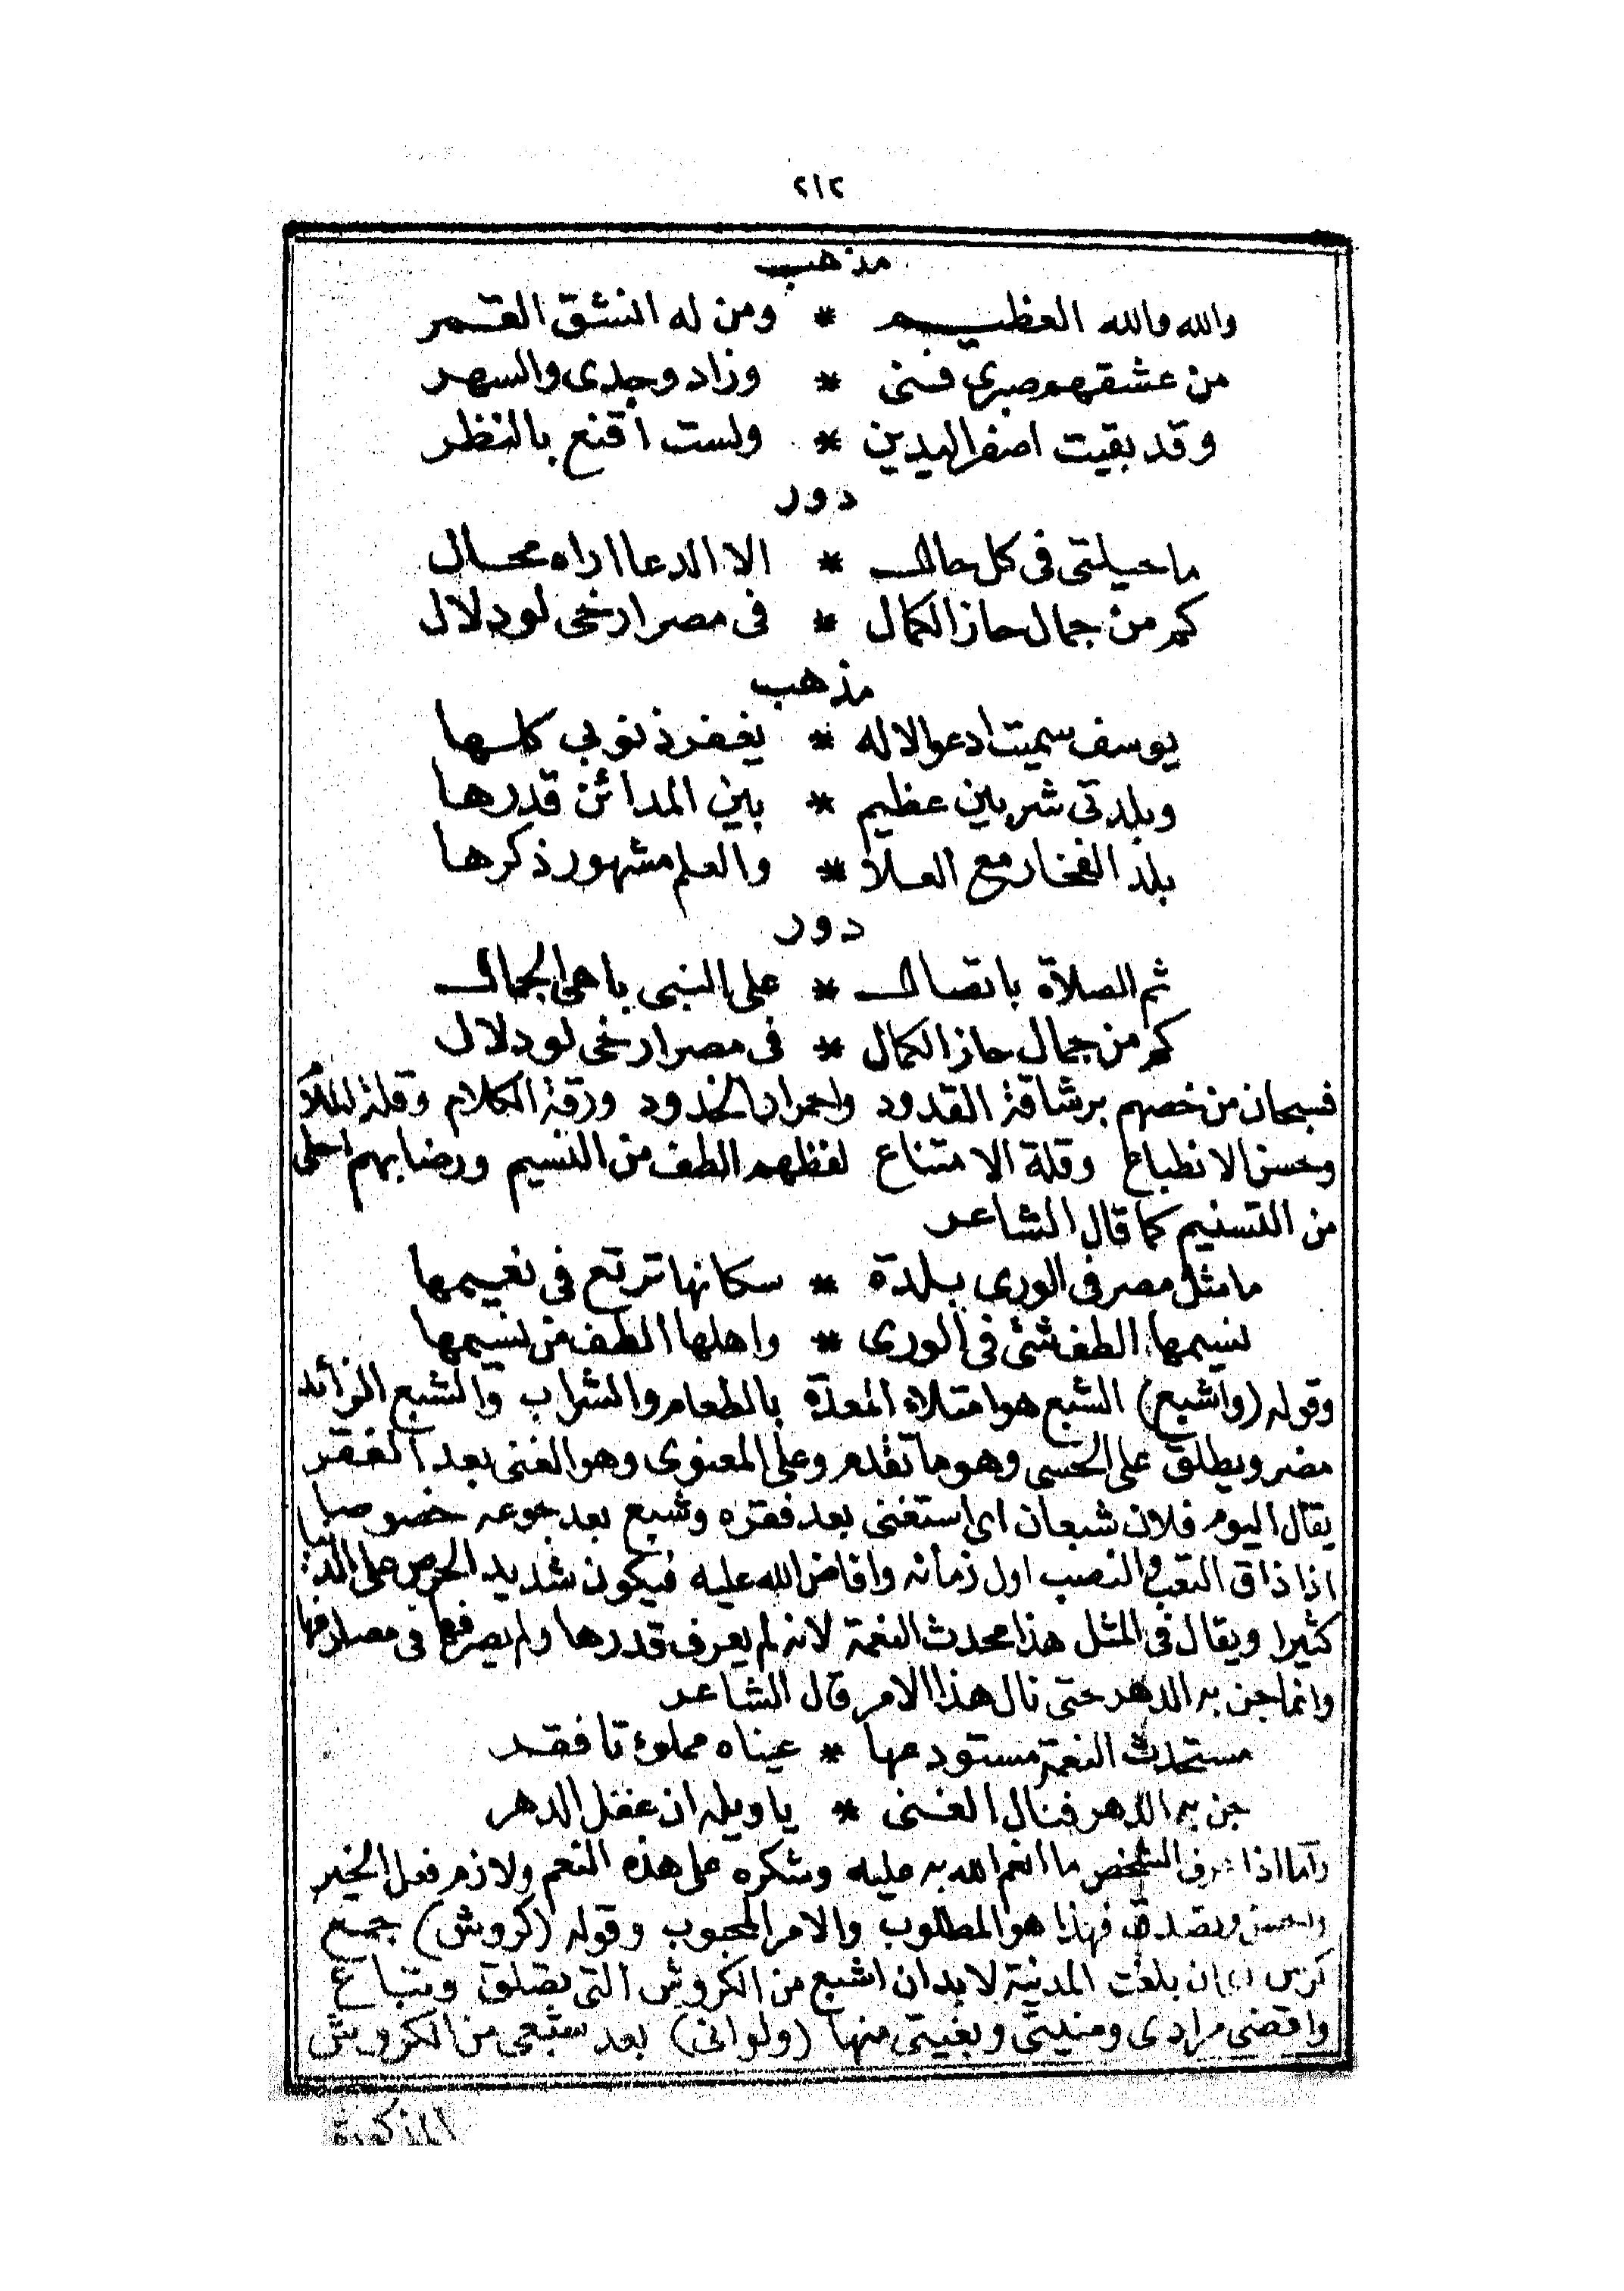 ٢١٢
مذهب
والله والله العظيم * ومن له انشق القمر
من عشقهم صبري فنى * وزاد وجدى والسهر
وقد بقيت اصفر اليدين * ولست أقنع بالنظر
دور
ما حيلتى فى كل حال * الا الدعا اراه محال
كم من جمال حاز الكمال * فى مصر ارخى لو دلال
مذهب
يوسف سميت ادعو الاله * يغفر ذنوبى كلها
وبلدتى شربين عظيم * بين المدائن قدرها
بلد الفخار مع العلا * والعلم مشهور ذكرها
دور
ثم الصلاة باتصال * على النبى باهى الجمال
كم من جمال حاز الكمال * فى مصر ارخى لو دلال
فسبحان من خصهم برشاقة القدود واحمرار الخدود ورقة الكلام وقلة الملام
وحسن الانطباع وقلة الامتناع لفظهم الطف من النسيم ورضابهم احلى
من التسنيم كما قال الشاعر
ما مثل مصر فى الورى بلدة * سكانها ترتع فى نعيمها
نسيمها الطف شئ فى الورى * واهلها الطف من نسيمها
وقوله (واشبع) الشبع هو امتلاء المعدة بالطعام والشراب والشبع الزائد
مضر ويطلق على الحسى وهو ما تقدم وعلى المعنوى وهو الغنى بعد الفقر
يقال اليوم فلان شبعان اى استغنى بعد فقره وشبع بعد جوعه خصوصا
اذا ذاق التعب والنصب اول زمانه وافاض الله عليه فيكون شديد الحرص على الدنيا
كثيرا ويقال فى المثل هذا محدث النعمة لانه لم يعرف قدرها ولم يصرفها فى مصارفها
وانما جن به الدهر حتى نال هذا الامر قال الشاعر
مستحدث النعمة مستودعها * عيناه مملوءتا فقد
جن به الدهر فنال الغنى * يا ويله ان عقل الدهر
وأما اذا عرف الشخص ما انعم الله به عليه وشكره على هذه النعم ولازم فعل الخير
وتصدق فهذا هو المطلوب والامر المحبوب وقوله (كروش) جمع
كرش ان بلغت المدنية لابد ان اشبع من الكروش التى تصلق وتباع
واقضى مرادى ومنيتى وبغيتى منها (ولوانى) بعد شبعى من الكروش
المذكورة